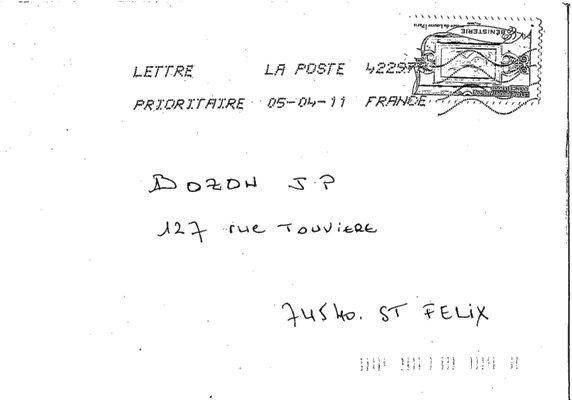 LETTRE LA POSTE 42297A
PRIORITAIRE 05-04-11 FRANCE
BENISTERIE
BOZON J.P
127 rue TOUVIERE
74540. ST FELIX